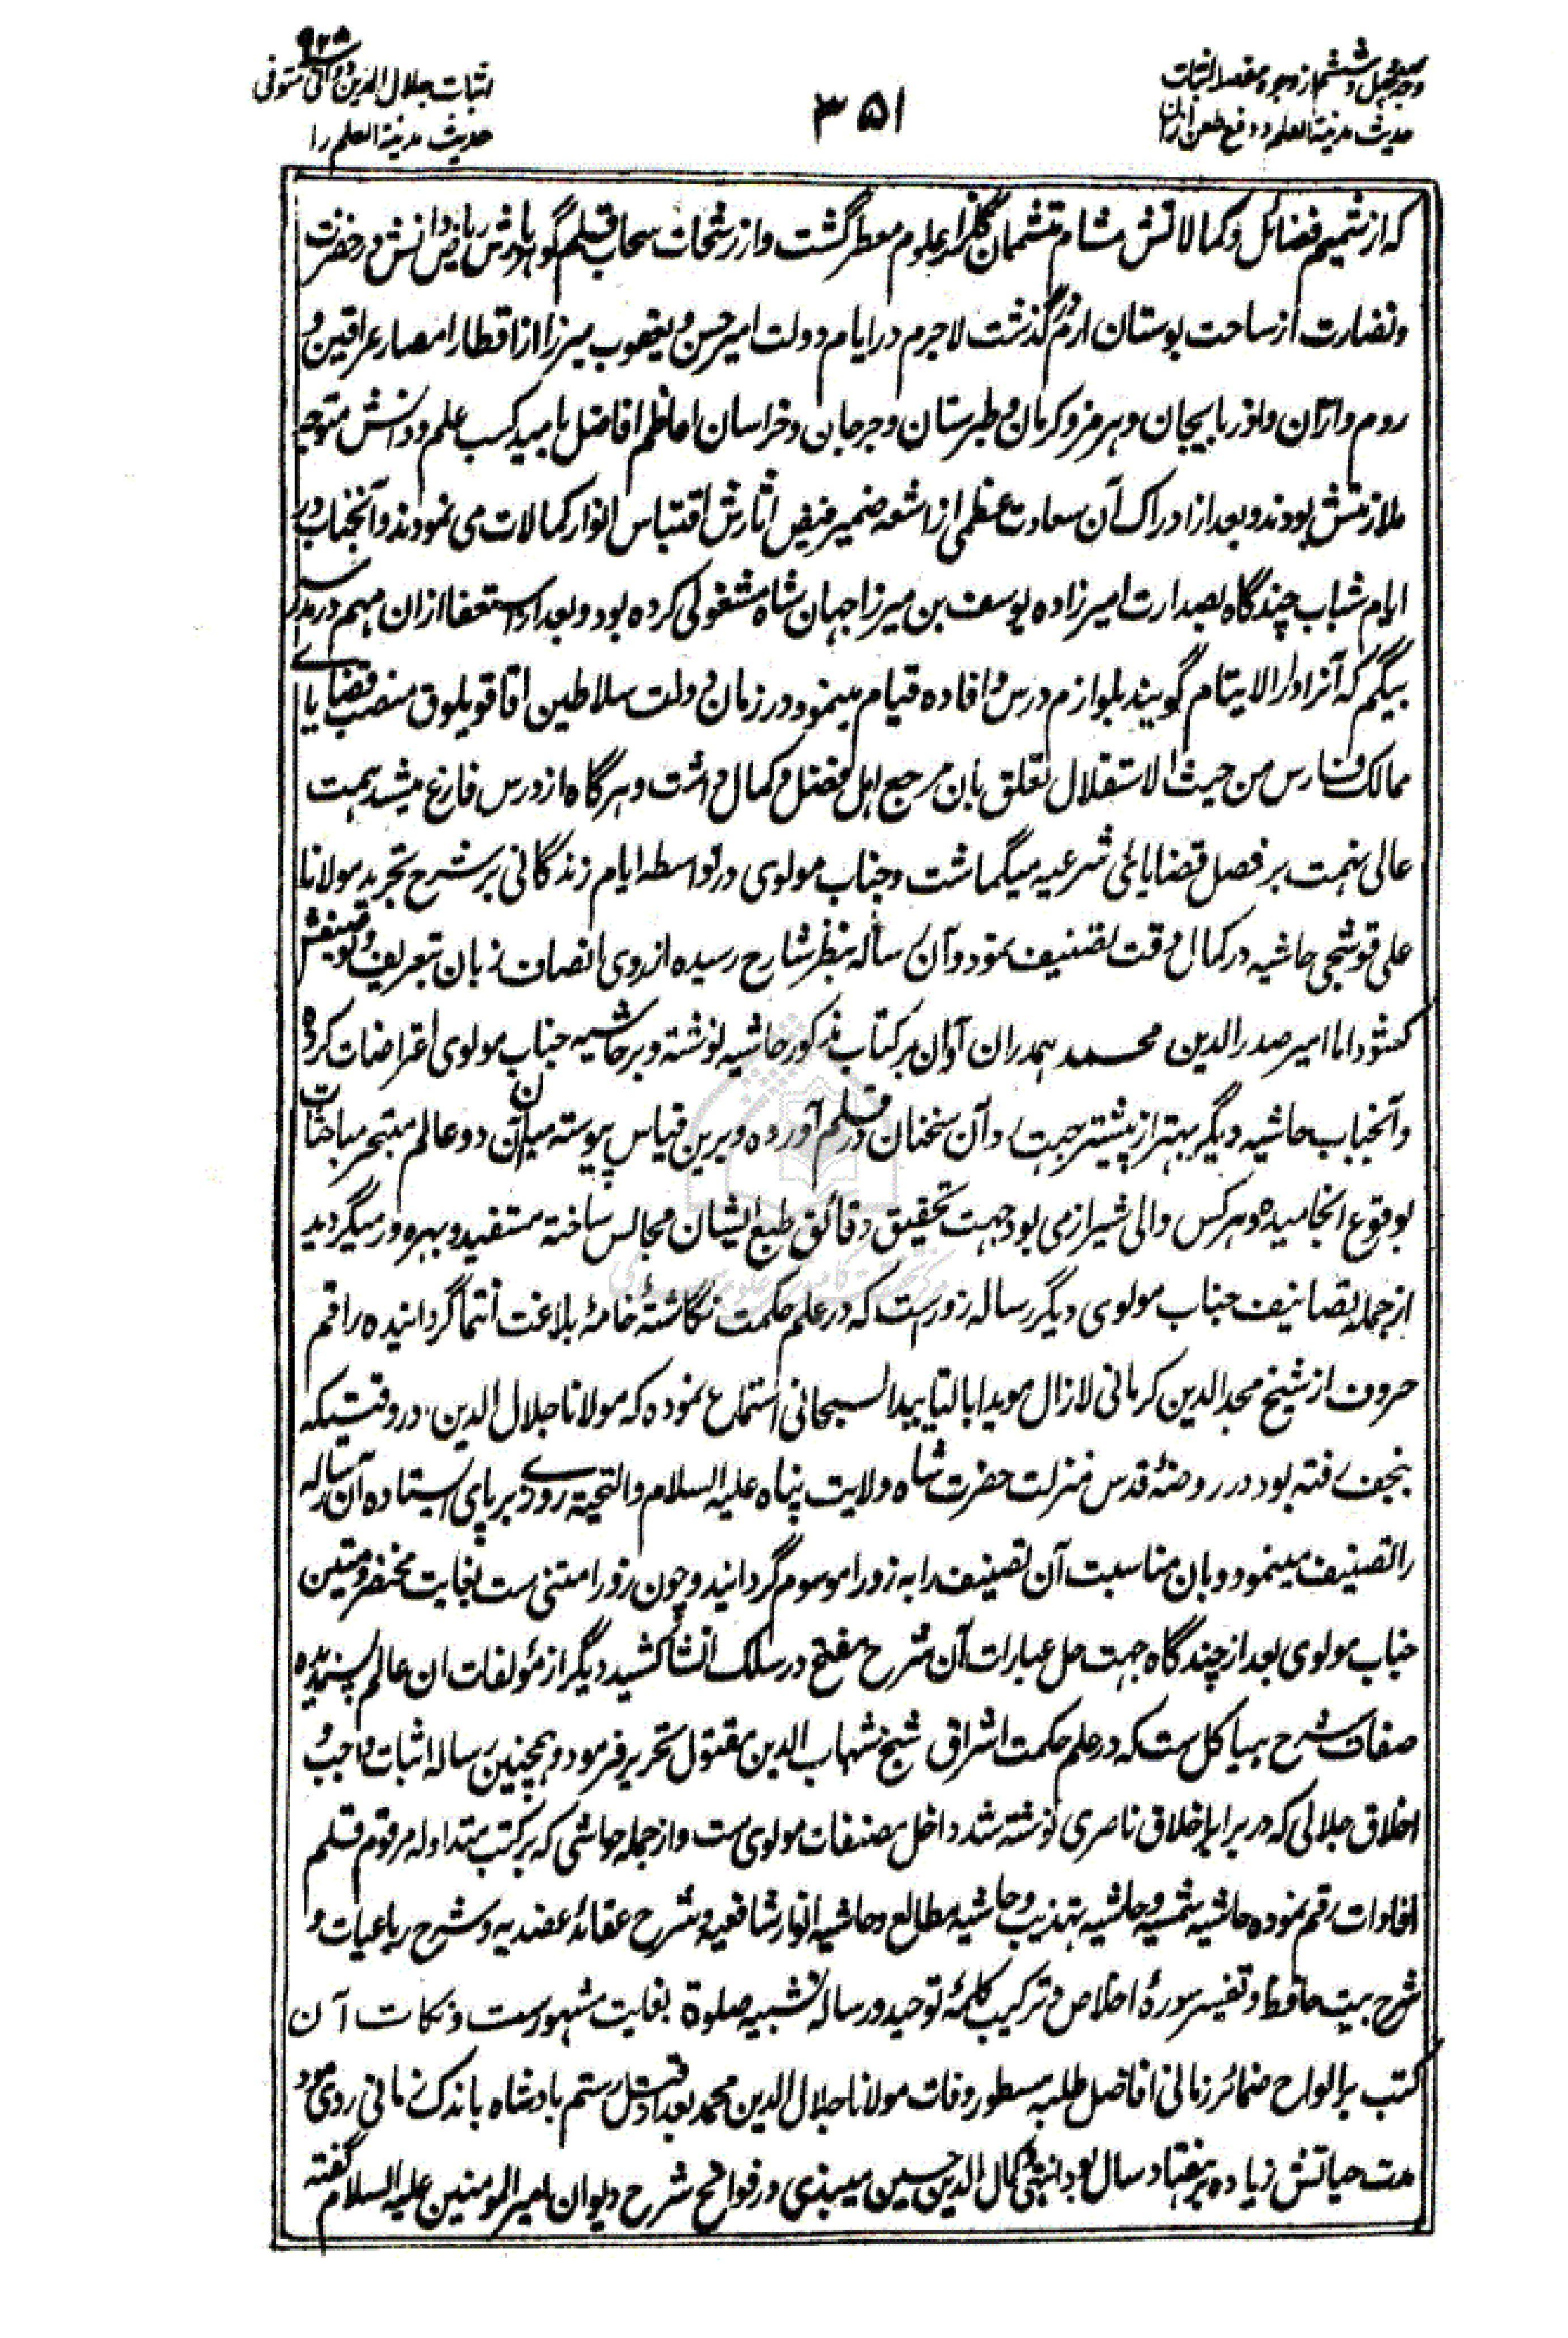 وجه چهل و ششم از وجوه مفصله اثبات
حدیث مدینة العلم و دفع طعن ازان
۳۵۱
۹۲۸
اثبات جلال الدین دوانی متوفی
حدیث مدینة العلم را
که از شمیم فضائل و کمالاتش مشام متشممان گلزار علوم معطر گشت و از رشحات سحاب قلم گوهربارش ریاض دانش در خضرت
و نضارت از ساحت بوستان ارم در گذشت لاجرم در ایام دولت امیر حسن و یعقوب میرزا از اقطار امصار عراقین و
روم و ارّان و اذربایجان و هرمز و کرمان و طبرستان و جرجان و خراسان اعاظم افاضل بامید کسب علم و دانش متوجه
ملازمتش بودند و بعد از ادراک آن سعادت عظمی از اشعه ضمیر فیض آثارش اقتباس انوار کمالات می نمودند و آنجناب در
ایام شباب چندگاه بصدارت امیرزاده یوسف بن میرزا جهان شاه مشغولی کرده بود و بعد از استعفا ازان مهم در مدرسه
بیگم که آنرا دار الایتام گویند بلوازم درس و افاده قیام مینمود در زمان دولت سلاطین اقا قویلوق منصب قضایای
ممالک فارس من حیث الاستقلال تعلق بآن مرجع اهل فضل و کمال داشت و هرگاه از درس فارغ میشد همت
عالی نهمت بر فصل قضایائی شرعیه میگماشت و جناب مولوی در اواسط ایام زندگانی بر شرح تجرید مولانا
علی قوشجی حاشیه در کمال دقت تصنیف نمود و آن رساله بنظر شارح رسیده از روی انصاف زبان بتعریف و توصیفش
کشود اما امیر صدر الدین محمد همدران آوان بر کتاب مذکور حاشیه نوشته و بر حاشیه جناب مولوی اعتراضات کرده
و آنجناب حاشیه دیگر بهتر از پیشتر جهت رد آن سخنان در قلم آورده و برین قیاس پیوسته میان آن دو عالم متبحر مباحثات
بوقوع انجامیده و هر کس والی شیراز می بود جهت تحقیق دقائق طبع ایشان مجالس ساخته مستفید و بهره ور میگردید
از جمله تصانیف جناب مولوی دیگر رساله زورست که در علم حکمت نگاشتهٔ خامهٔ بلاغت انتما گردانیده راقم
حروف از شیخ مجد الدین کرمانی لازال مویدا بالتایید السبحانی استماع نموده که مولانا جلال الدین در وقتیکه
بنجف رفته بود در روضهٔ قدس منزلت حضرت شاه ولایت پناه علیه السلام و التحیة روزی بر پای ایستاده آن رساله
را تصنیف مینمود و بآن مناسبت آن تصنیف را به زورا موسوم گردانید و چون زورا متنی ست بغایت مختصر و متین
جناب مولوی بعد از چندگاه جهت حل عبارات آن شرح مفتح در سلک انشا کشید دیگر از مؤلفات ان عالم پسندیده
صفات شرح هیاکل ست که در علم حکمت اشراق شیخ شهاب الدین مقتول تحریر فرمود و همچنین رساله اثبات واجب و
اخلاق جلالی که در برابر اخلاق ناصری نوشته شد داخل مصنفات مولوی ست و از جمله حواشی که بر کتب متداوله مرقوم قلم
افادات رقم نموده حاشیه شمسیه و حاشیه تهذیب و حاشیه مطالع و حاشیه انوار شافعیه و شرح عقائد عضدیه و شرح رباعیات و
شرح بیت حافظ و تفسیر سورهٔ اخلاص و ترکیب کلمهٔ توحید و رساله تشبیه صلوة بغایت مشهورست و نکات آن
کتب بر الواح ضمائر زمانی افاضل طلبه مسطور وفات مولانا جلال الدین محمد بعد از قتل رستم بادشاه باندک زمانی روی نمود
مدت حیاتش زیاده بر هفتاد سال بود انتهی و کمال الدین حسین میبذی در فواتح شرح دیوان امیر المومنین علیه السلام گفته